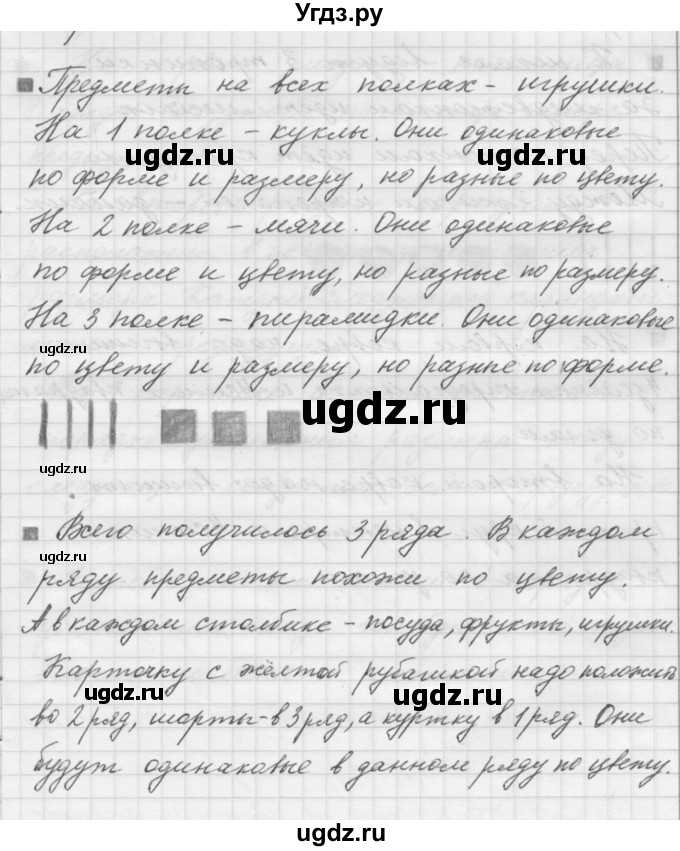 Угдз.ру
Предметы на всех полках - игрушки.
На 1 полке - куклы. Они одинаковые
ugdz.ru ugdz.ru
по форме и размеру, но разные по цвету.
На 2 полке - мячи. Они одинаковые
по форме и цвету, но разные по размеру.
На 3 полке - пирамидки. Они одинаковые
ugdz.ru
по цвету и размеру, но разные по форме.
ugdz.ru
ugdz.ru
Всего получилось 3 ряда. В каждом
ugdz.ru
ряду предметы похожи по цвету.
А в каждом столбике - посуда, фрукты, игрушки.
Карточку с жёлтой рубашкой надо положить
ugdz.ru ugdz.ru
во 2 ряд, шорты - в 3 ряд, а куртку в 1 ряд. Они
будут одинаковые в данном ряду по цвету.
ugdz.ru